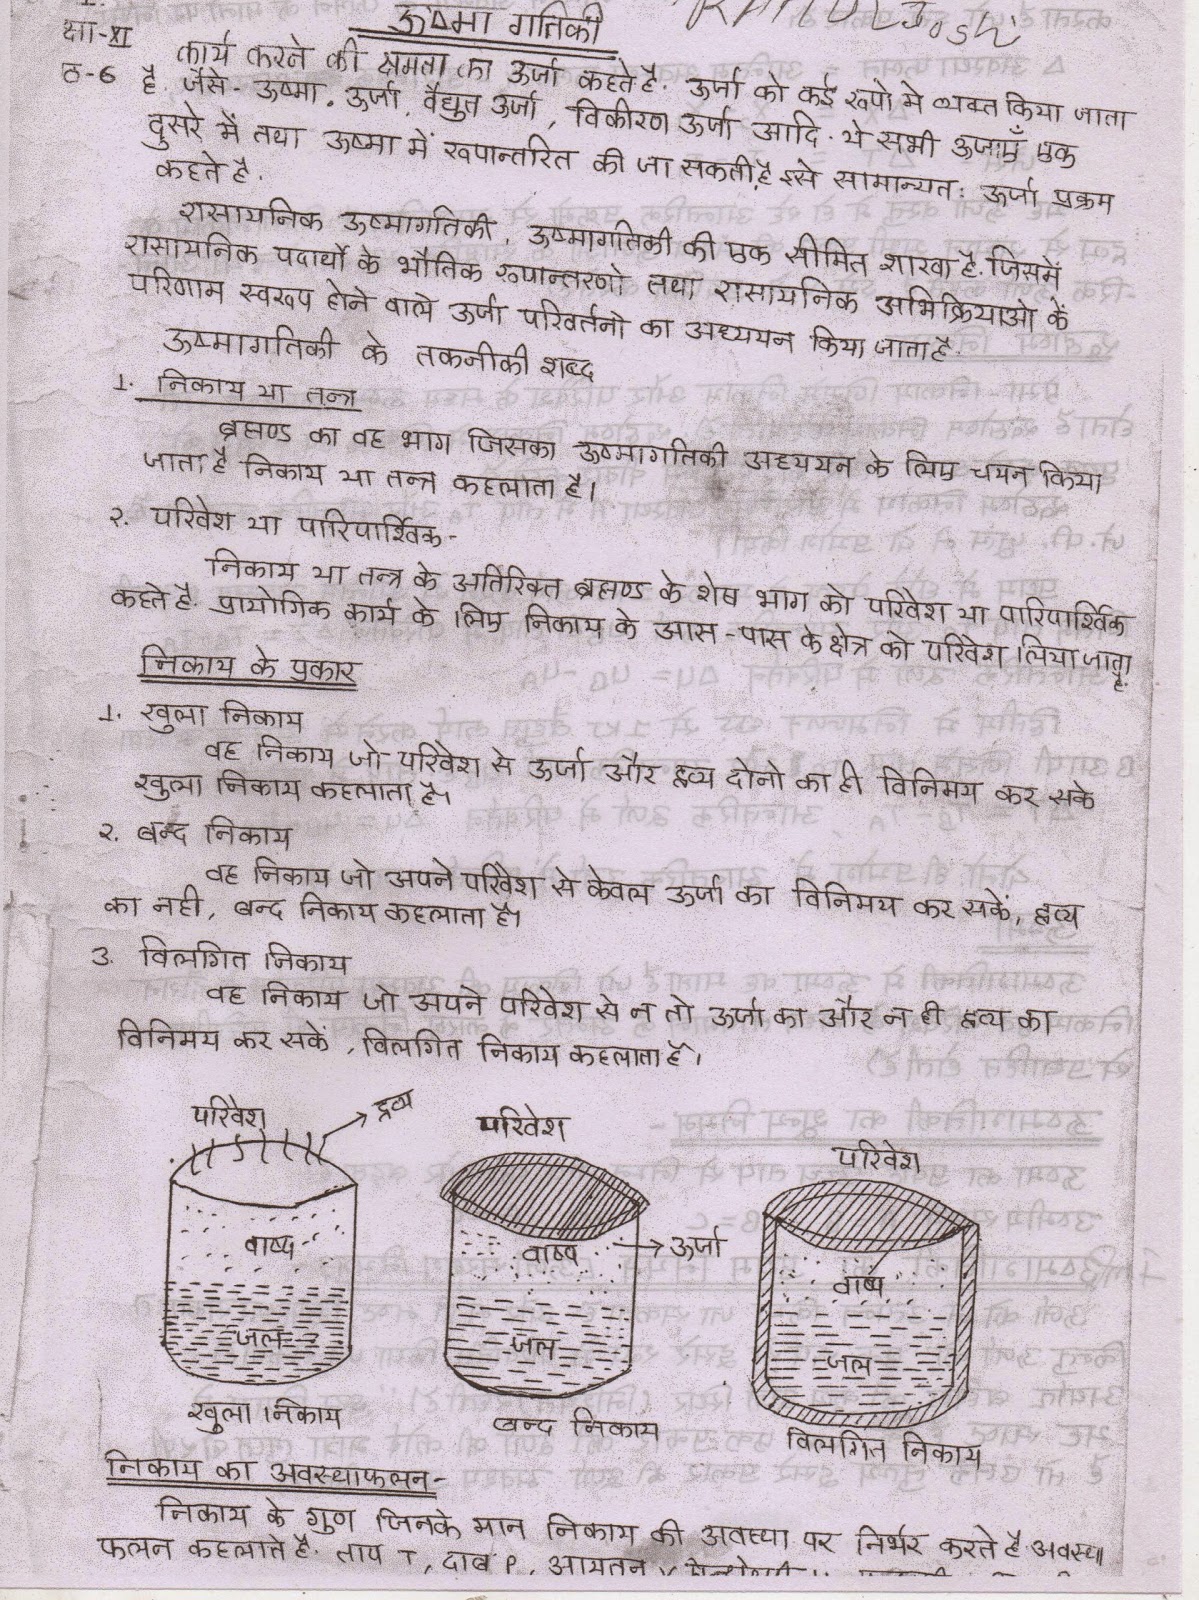 ऊष्मा गतिकी
Joshi
क्षा-XI
ठ-6
कार्य करने की क्षमता का ऊर्जा कहते है. ऊर्जा को कई रूपो मे व्यक्त किया जाता
है. जैसे- ऊष्मा, ऊर्जा, वैद्युत ऊर्जा, विकीरण ऊर्जा आदि. ये सभी ऊर्जाएँ एक
दुसरे में तथा ऊष्मा में रूपान्तरित की जा सकती है इसे सामान्यतः ऊर्जा प्रक्रम
कहते है.
रासायनिक ऊष्मागतिकी, ऊष्मागतिकी की एक सीमित शाखा है. जिसमें
रासायनिक पदार्थो के भौतिक रूपान्तरणो तथा रासायनिक अभिक्रियाओ के
परिणाम स्वरूप होने वाले ऊर्जा परिवर्तनो का अध्ययन किया जाता है.
ऊष्मागतिकी के तकनीकी शब्द
1. निकाय या तन्त्र
ब्रह्मण्ड का वह भाग जिसका ऊष्मागतिकी अध्ययन के लिए चयन किया
जाता है निकाय या तन्त्र कहलाता है।
२. परिवेश या पारिपार्श्विक-
निकाय या तन्त्र के अतिरिक्त ब्रह्मण्ड के शेष भाग को परिवेश या पारिपार्श्विक
कहते है. प्रायोगिक कार्य के लिए निकाय के आस-पास के क्षेत्र को परिवेश लिया जाता
है.
निकाय के प्रकार
1. खुला निकाय
वह निकाय जो परिवेश से ऊर्जा और द्रव्य दोनो का ही विनिमय कर सके
खुला निकाय कहलाता है।
२. बन्द निकाय
वह निकाय जो अपने परिवेश से केवल ऊर्जा का विनिमय कर सकें, द्रव्य
का नही, बन्द निकाय कहलाता है।
3. विलगित निकाय
वह निकाय जो अपने परिवेश से न तो ऊर्जा का और न ही द्रव्य का
विनिमय कर सकें, विलगित निकाय कहलाता है।
परिवेश
द्रव्य
परिवेश
परिवेश
वाष्प
वाष्प
ऊर्जा
वाष्प
जल
जल
जल
खुला निकाय
बन्द निकाय
विलगित निकाय
निकाय का अवस्थाफलन-
निकाय के गुण जिनके मान निकाय की अवस्था पर निर्भर करते है अवस्था
फलन कहलाते है. ताप T, दाब P, आयतन V